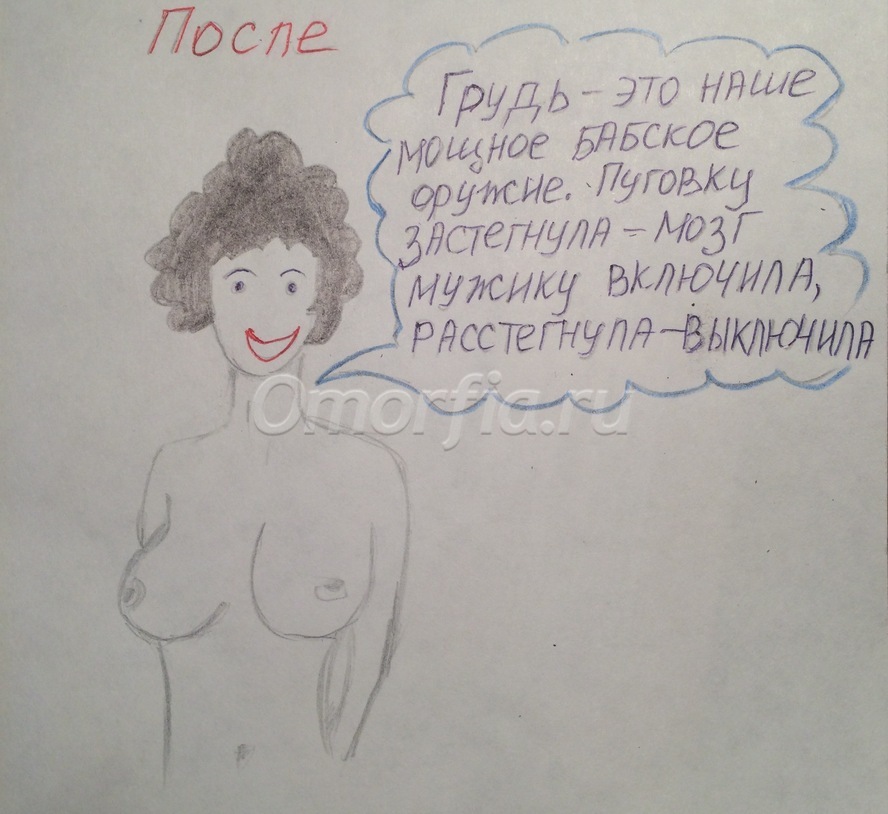 После
Грудь – это наше
мощное бабское
оружие. Пуговку
застегнула – мозг
мужику включила,
расстегнула – выключила
Omorfia.ru